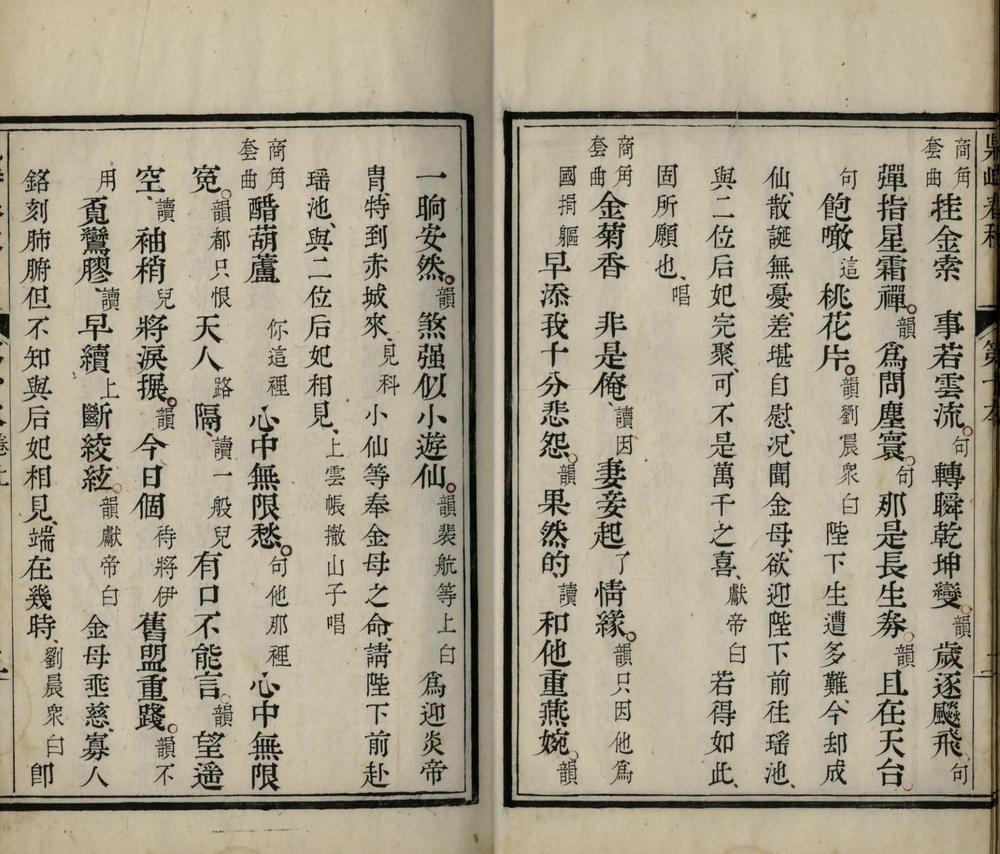 鼎峙春秋
第十本
商角套曲 挂金索 事若雲流句轉瞬乾坤變韻歲逐飈飛句
彈指星霜禪韻爲問塵寰句那是長生券韻且在天台
句飽噉這桃花片韻劉晨衆白陛下生遭多難今却成
仙散誕無憂差堪自慰况聞金母欲迎陛下前往瑶池
與二位后妃完聚可不是萬千之喜獻帝白若得如此
固所願也唱
商角套曲 金菊香 非是俺讀因妻妾起了情緣韻只因他爲
國捐軀早添我十分悲怨韻果然的讀和他重燕婉韻
一晌安然韻煞强似小遊仙韻裴航等上白爲迎炎帝
胄特到赤城來見科小仙等奉金母之命請陛下前赴
瑶池與二位后妃相見上雲帳撤山子唱
商角套曲 醋葫蘆 你這裡心中無限愁句他那裡心中無限
寃韻都只恨天人路隔讀一般兒有口不能言韻望遥
空讀袖稍兒將淚搌韻今日個待將伊舊盟重踐韻不
用覔鸞膠讀早續上斷絞絃韻獻帝白金母垂慈寡人
銘刻肺腑但不知與后妃相見端在幾時劉晨衆白卽